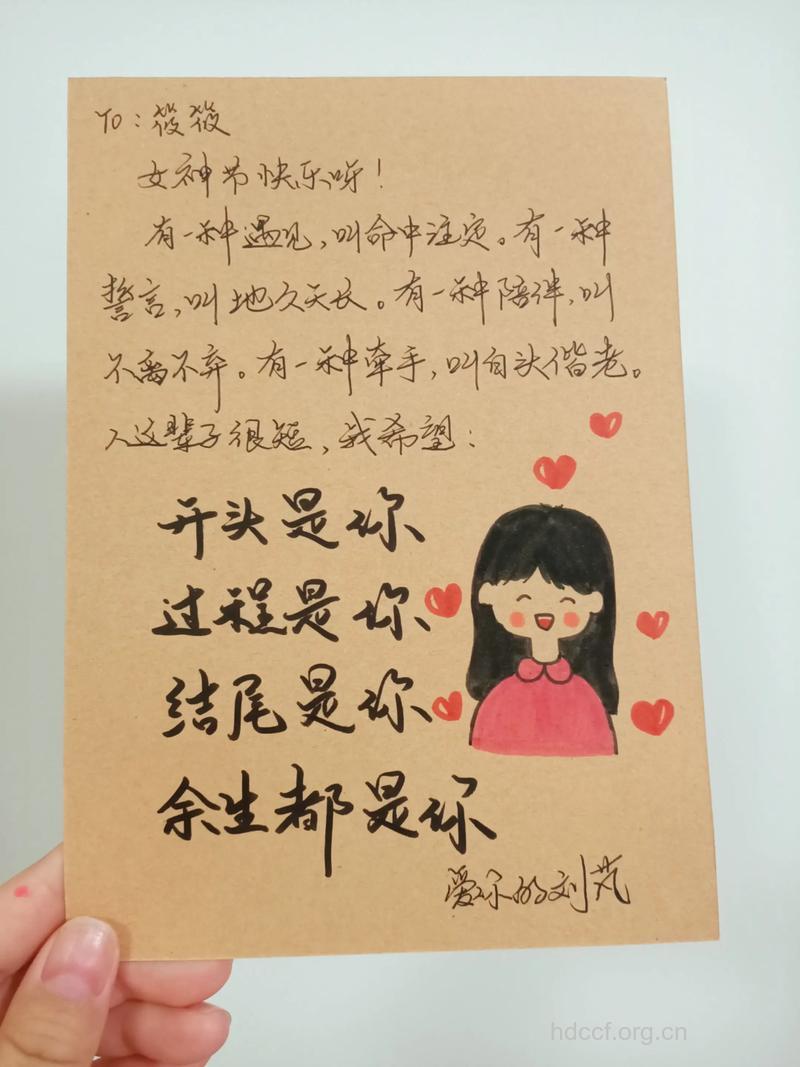 To：筱筱
女神节快乐呀！
有一种遇见，叫命中注定。有一种
誓言，叫地久天长。有一种陪伴，叫
不离不弃。有一种牵手，叫白头偕老。
人这辈子很短，我希望：
开头是你
过程是你
结尾是你
余生都是你
爱你的刘芃
hdccf.org.cn